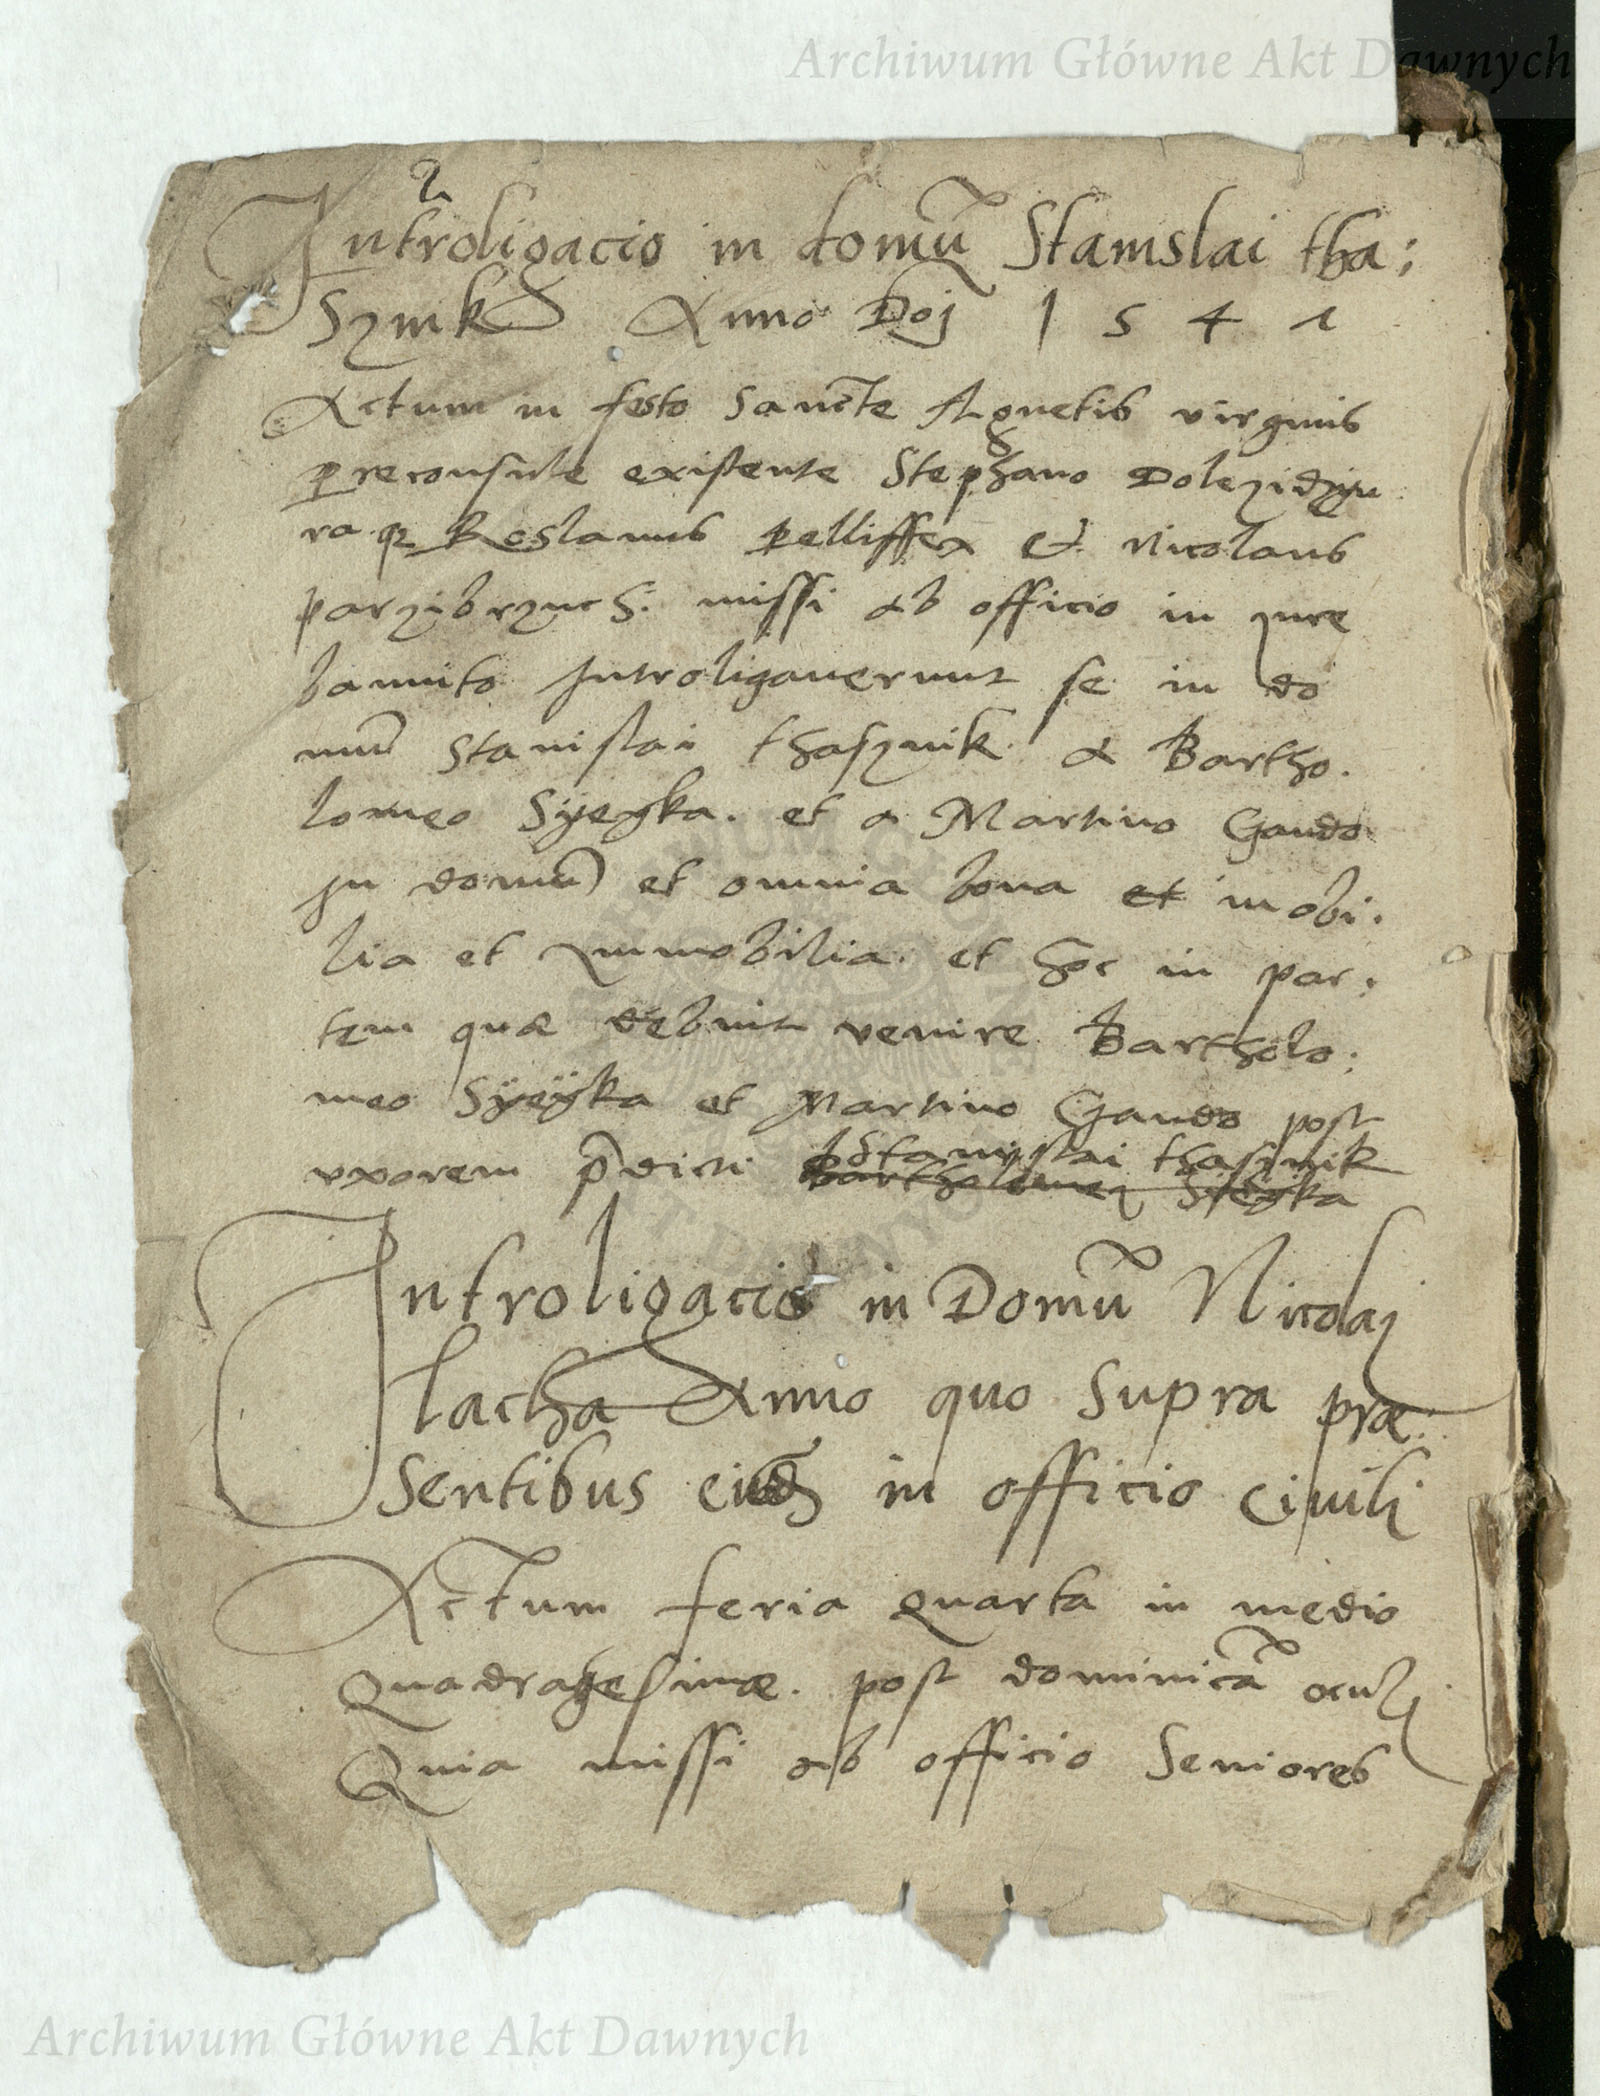 Archiwum Główne Akt Dawnych
2
Introligacio in domū Stanislai tha:
Sznik Anno Dnj 1 5 4 1
Actum in festo Sancte Agnetis virginis
preconsule existente Stephano
Roslanus pelliffex et Nicolaus
missi ab officio in jure
bannito Introligaverunt se in do
mū Stanislai thasznik a Bartho.
lomeo Syeyka. et a Martino Gando
in domū et omnia bona et mobi.
lia et Immobilia. et hoc in par:
tem quæ debuit venire Bartholo:
meo Syeyka et Martino Gando post
uxorem p̄dicti Stanislai thasznik
Bartholomei Syeyka
Introligacio in Domū Nicolaj
lacha Anno quo supra præ:
sentibus eisdē in officio civili
Actum feria quarta in medio
Quadragesimæ. post dominicā oculi
Quia missi ab officio Seniores
Archiwum Główne Akt Dawnych